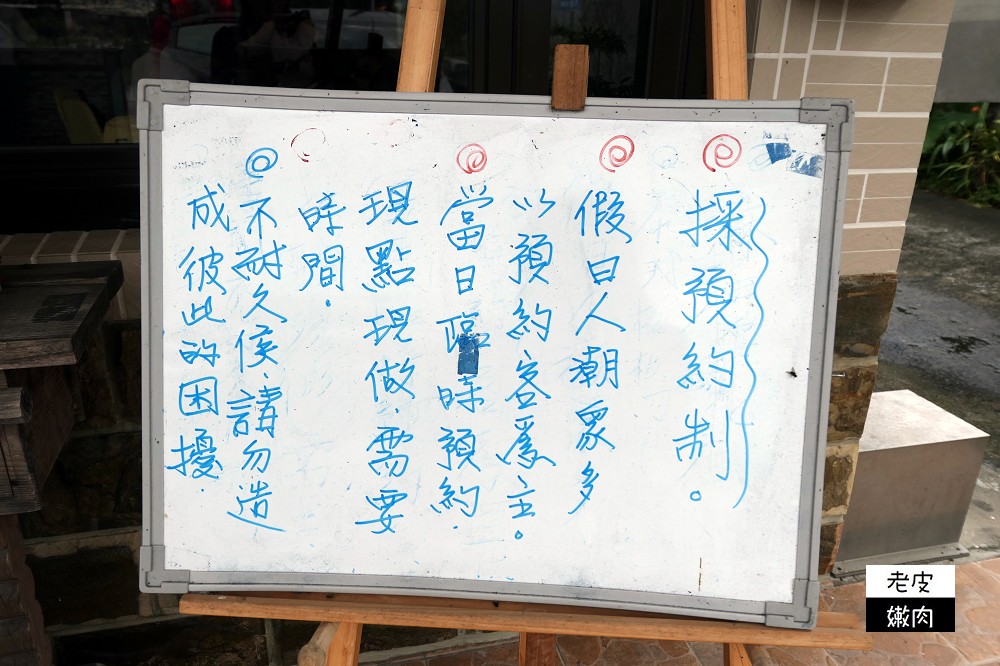 採預約制。
假日人潮眾多
以預約客為主。
當日臨時預約.
現點現做.需要
時間.
不耐久候.請勿造
成彼此的困擾.
老皮
嫩肉